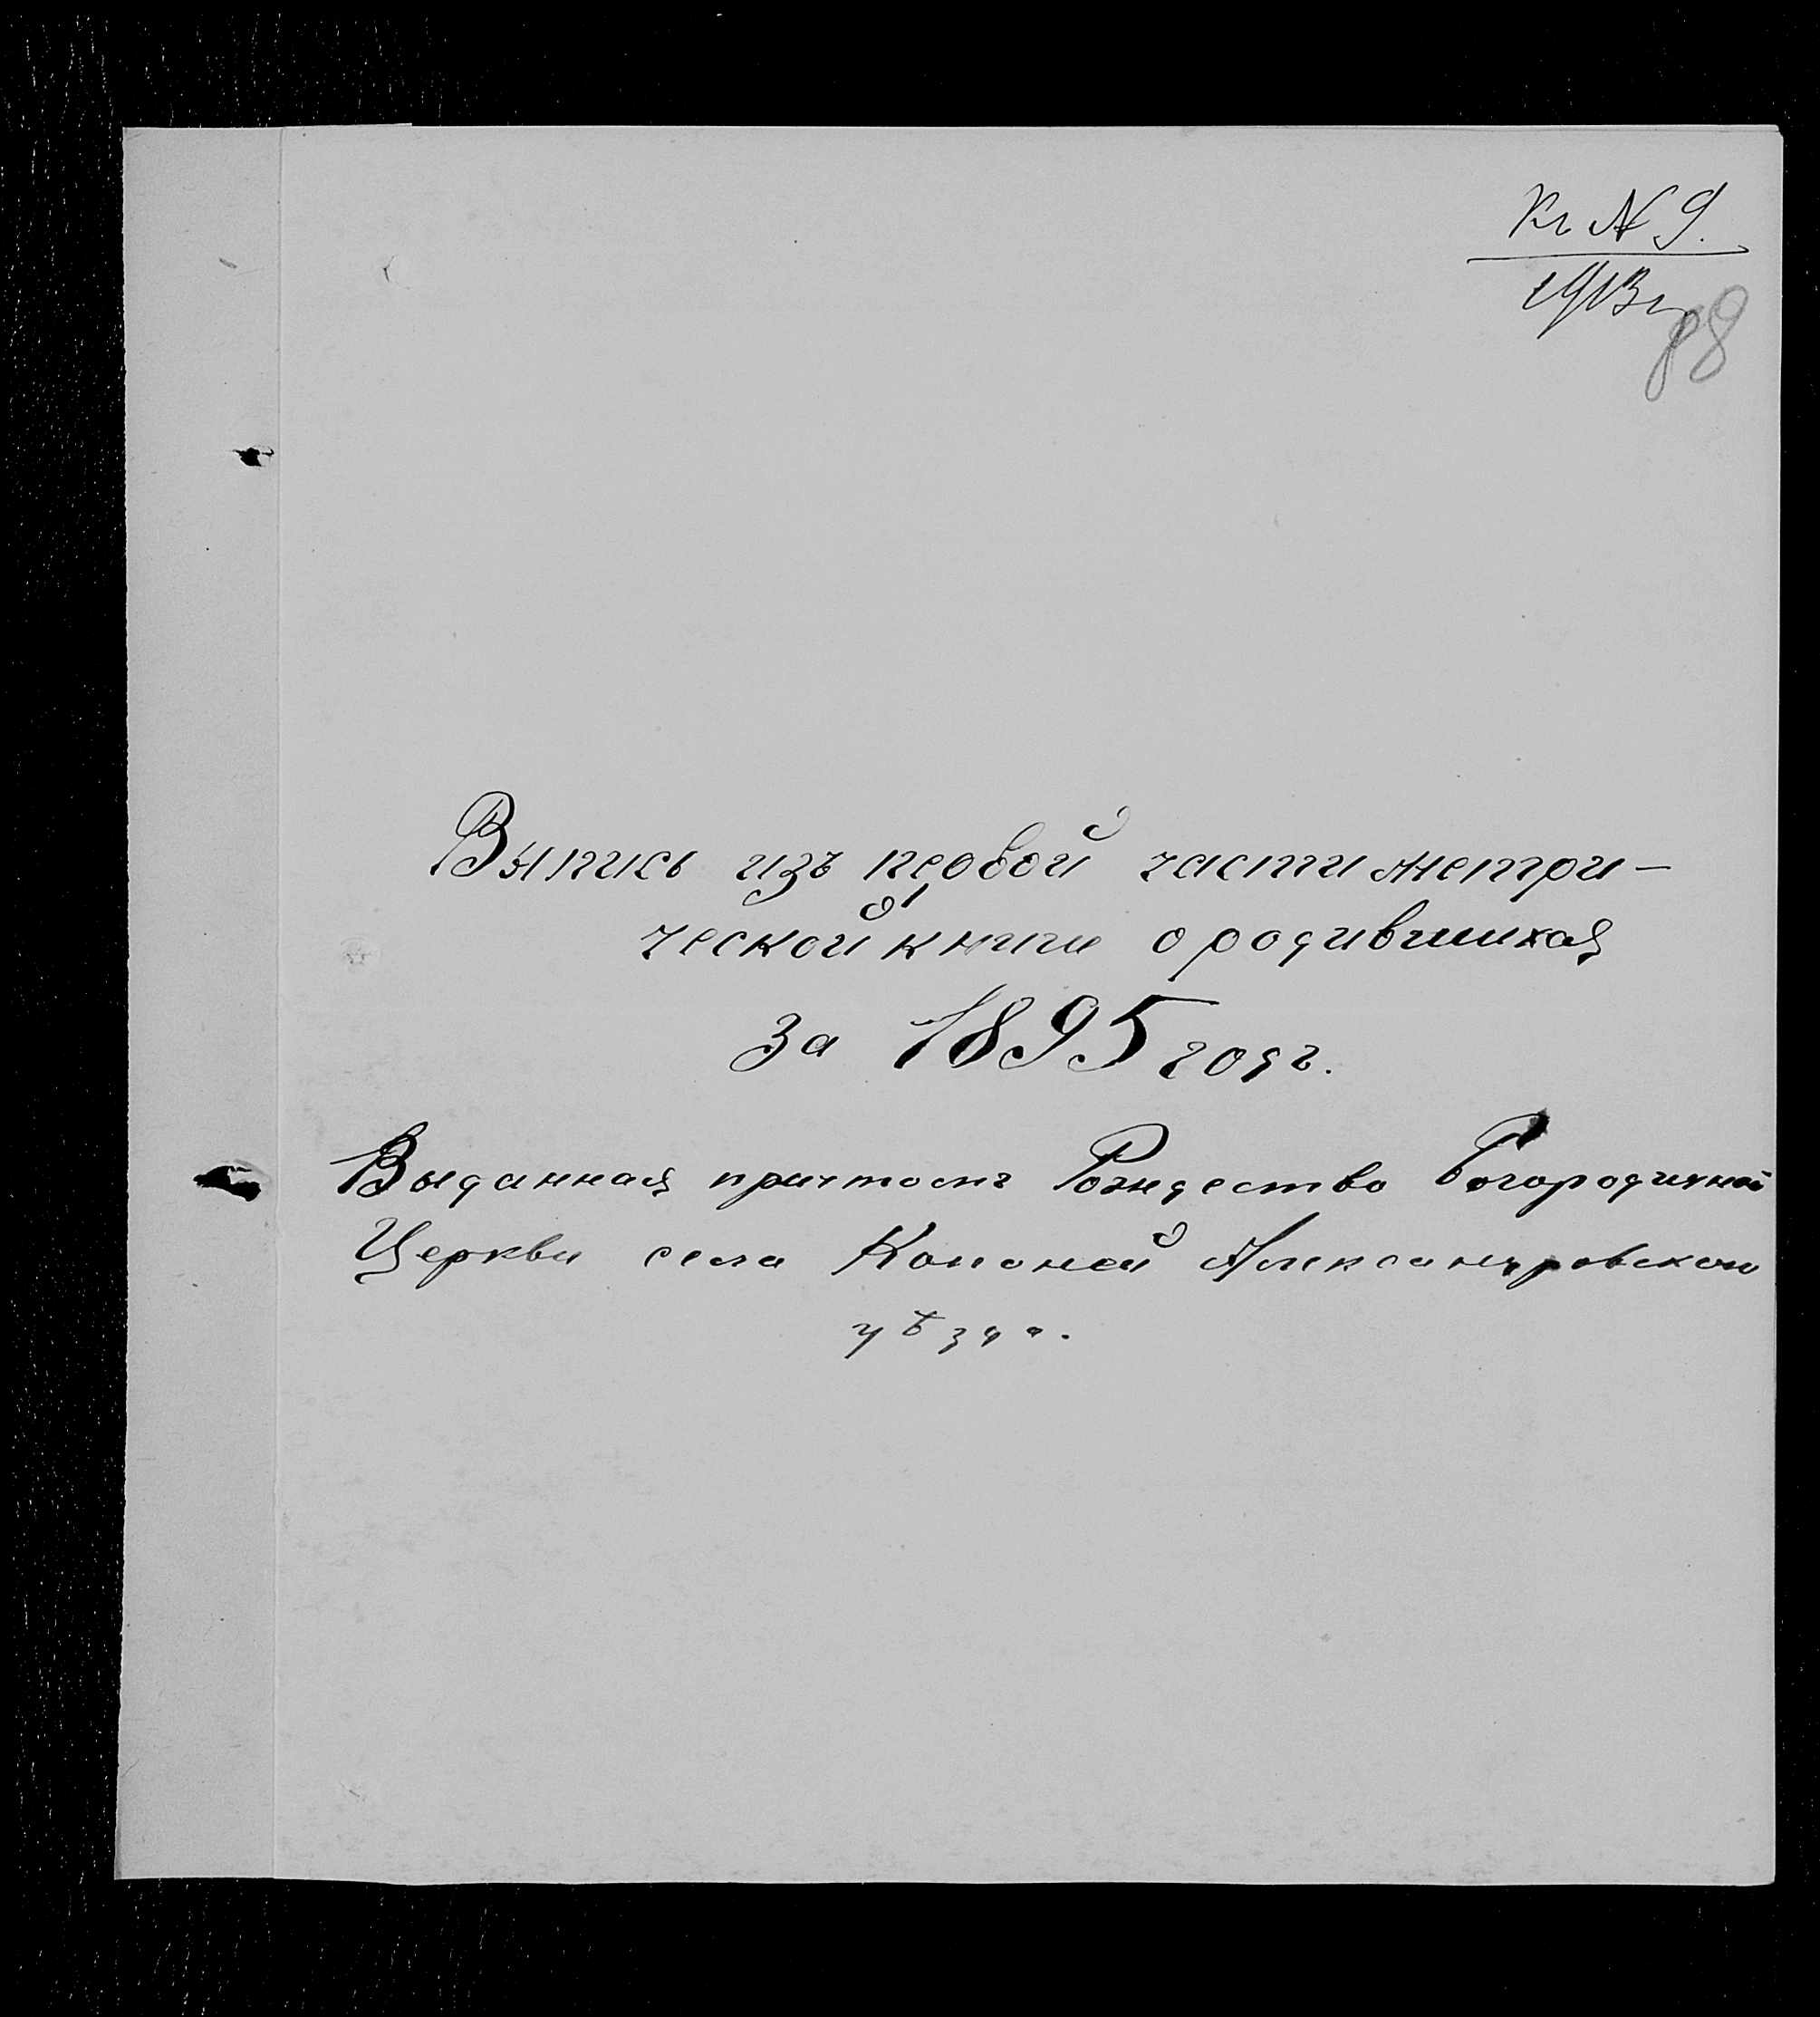 Кг № 9.
1913 г
88
Выпись изъ первой части метри-
ческой книги о родившихся
за 1895 годъ.
Выданная причтомъ Рождество Богородичной
Церкви села Копаной Александровскаго
уѣзда.